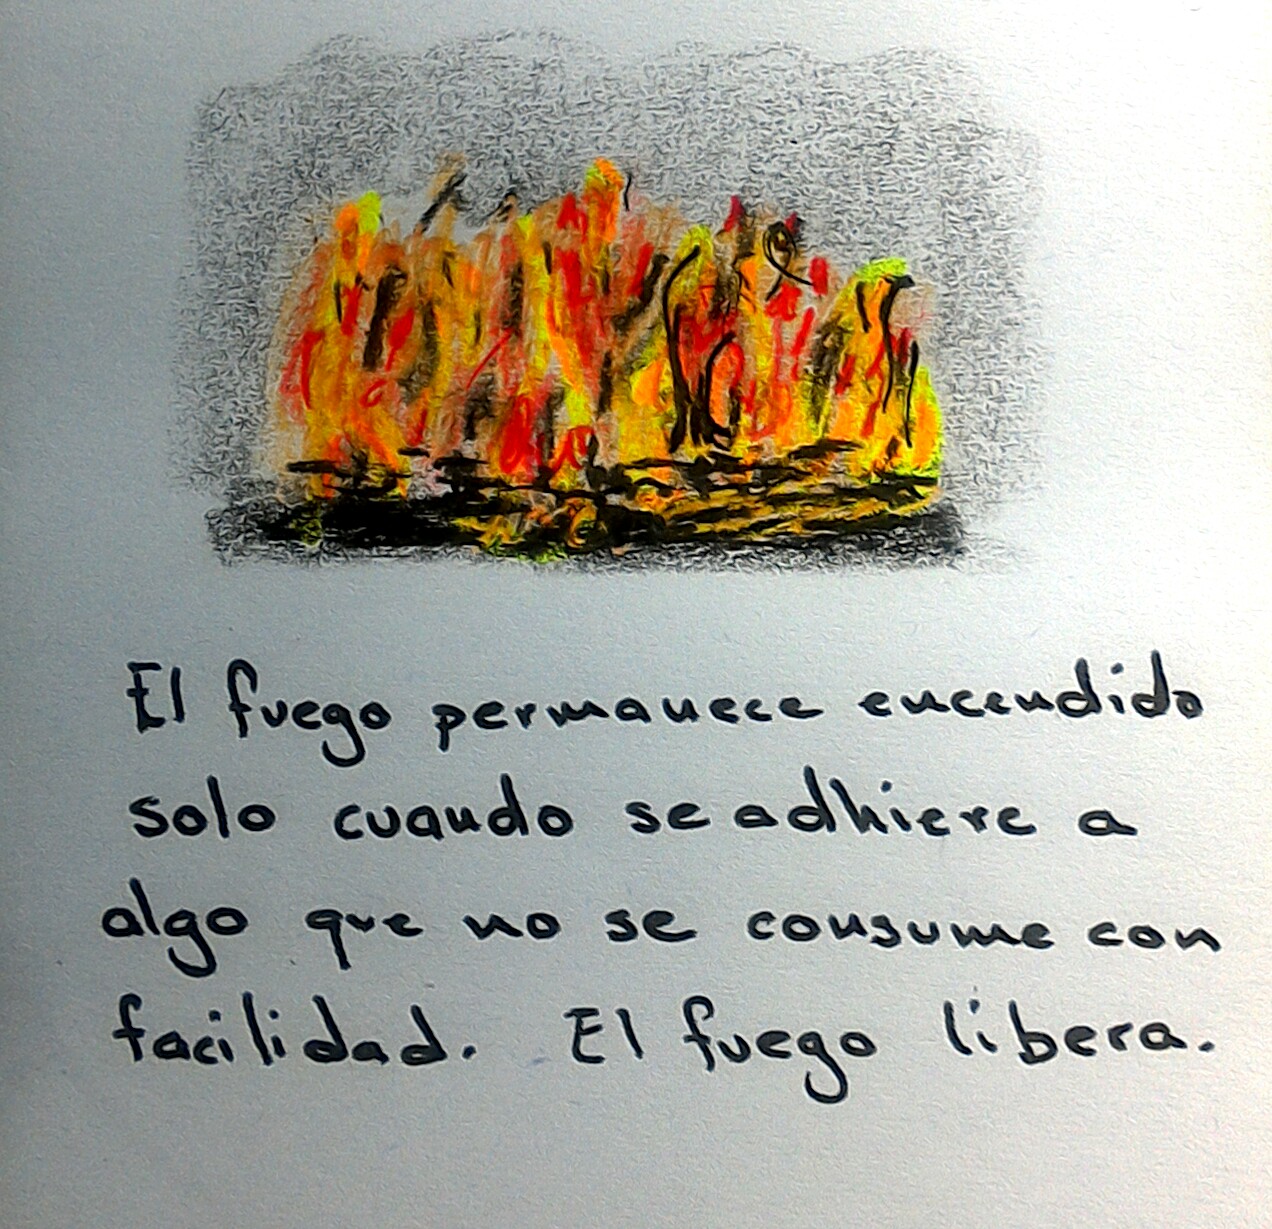 El fuego permanece encendido
solo cuando se adhiere a
algo que no se consume con
facilidad. El fuego libera.